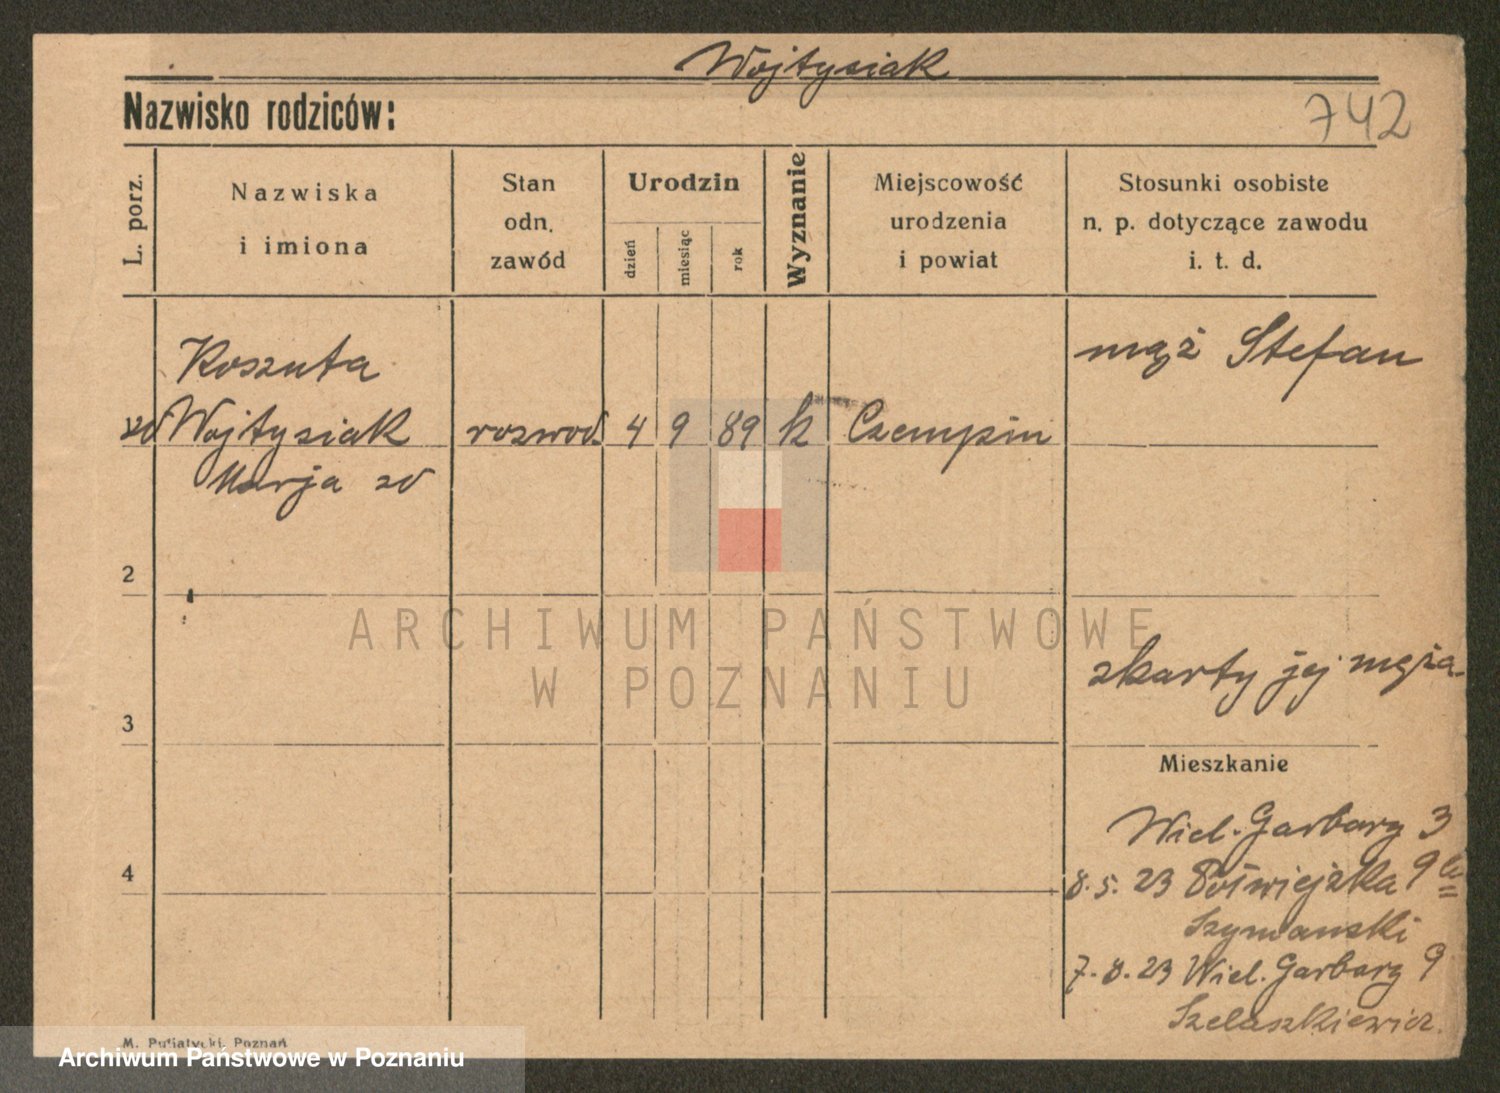 Wojtysiak
Nazwisko rodziców:
742
L. porz.
Nazwiska
i imiona
Stan
odn.
zawód
Urodzin
dzień
miesiąc
rok
Wyznanie
Miejscowość
urodzenia
i powiat
Stosunki osobiste
n. p. dotyczące zawodu
i. t. d.
Koszuta
mąż Stefan
zd Wojtysiak rozwod. 4 9 89 k Czempin
Marja zd
2
ARCHIWUM PAŃSTWOWE
W POZNANIU
z karty jej męża
3
Mieszkanie
Wiel. Garbary 3
4
8.5.23 Poświejska 9
Szymanski
7.8.23 Wiel. Garbary 9
Szelaszkiewicz.
M. Putiatycki, Poznań
Archiwum Państwowe w Poznaniu